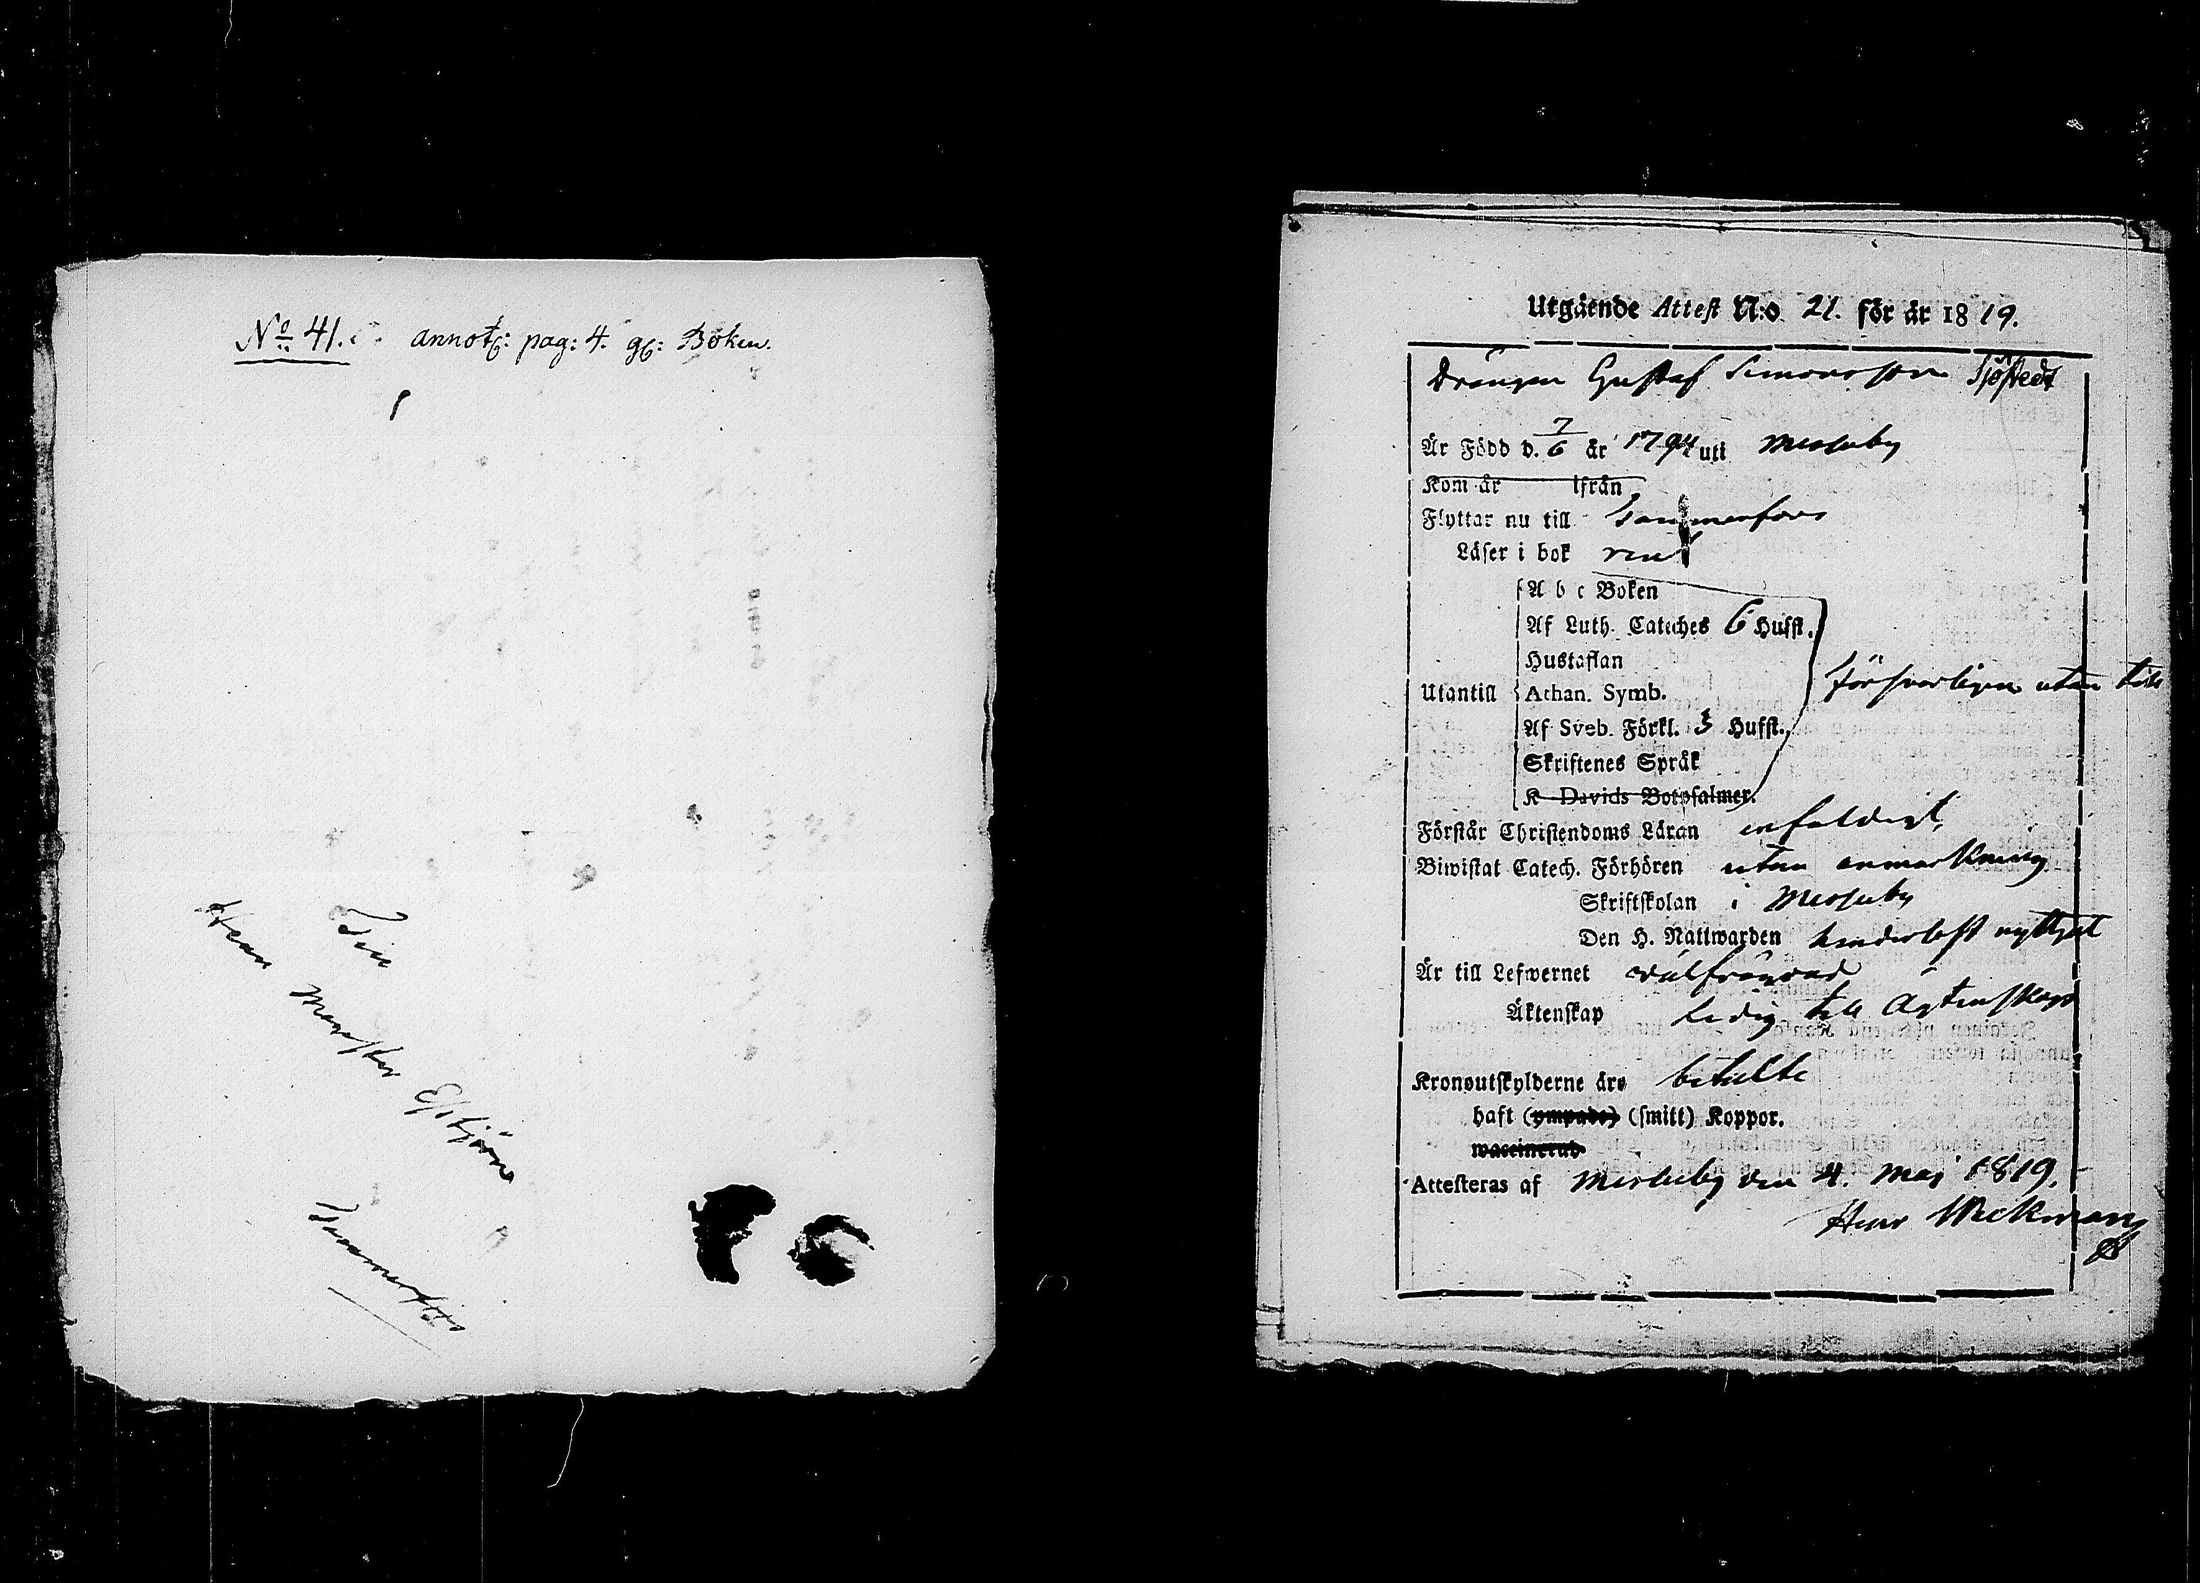 No 41. annot: pag: 4. gb: Boken.
Till
Herr
Mönster
Tammerfors
Utgående Attest N:o 21. för år 1819.
Drängen Gustaf Simonsson Sjöstedt
Är Född d. 7/6 år 1794 uti Messuby
Kom år ifrån
Flyttar nu till Tammerfors
Läser i bok rent
A b c Boken
Af Luth. Cateches 6 Hufst.
Hustaflan
Utantill Athan. Symb. försvarligen utan till
Af Sveb. Förkl. 3 Hufst.
Skriftenes Språk
K Davids Botpsalmer.
Förstår Christendoms Läran enfaldigt,
Biwistat Catech. Förhören utan anmärkning
Skriftskolan i Messuby
Den H. Nattwarden hinderlöst nyttjat
Är till Lefwernet wälfrägdad
Äktenskap Ledig till Ägtenskap
Kronoutskylderne äro betalte
haft (ympade) (smitt) Koppor.
waccinerad
Attesteras af Messuby den 4. Maj 1819.
Henr Wickman